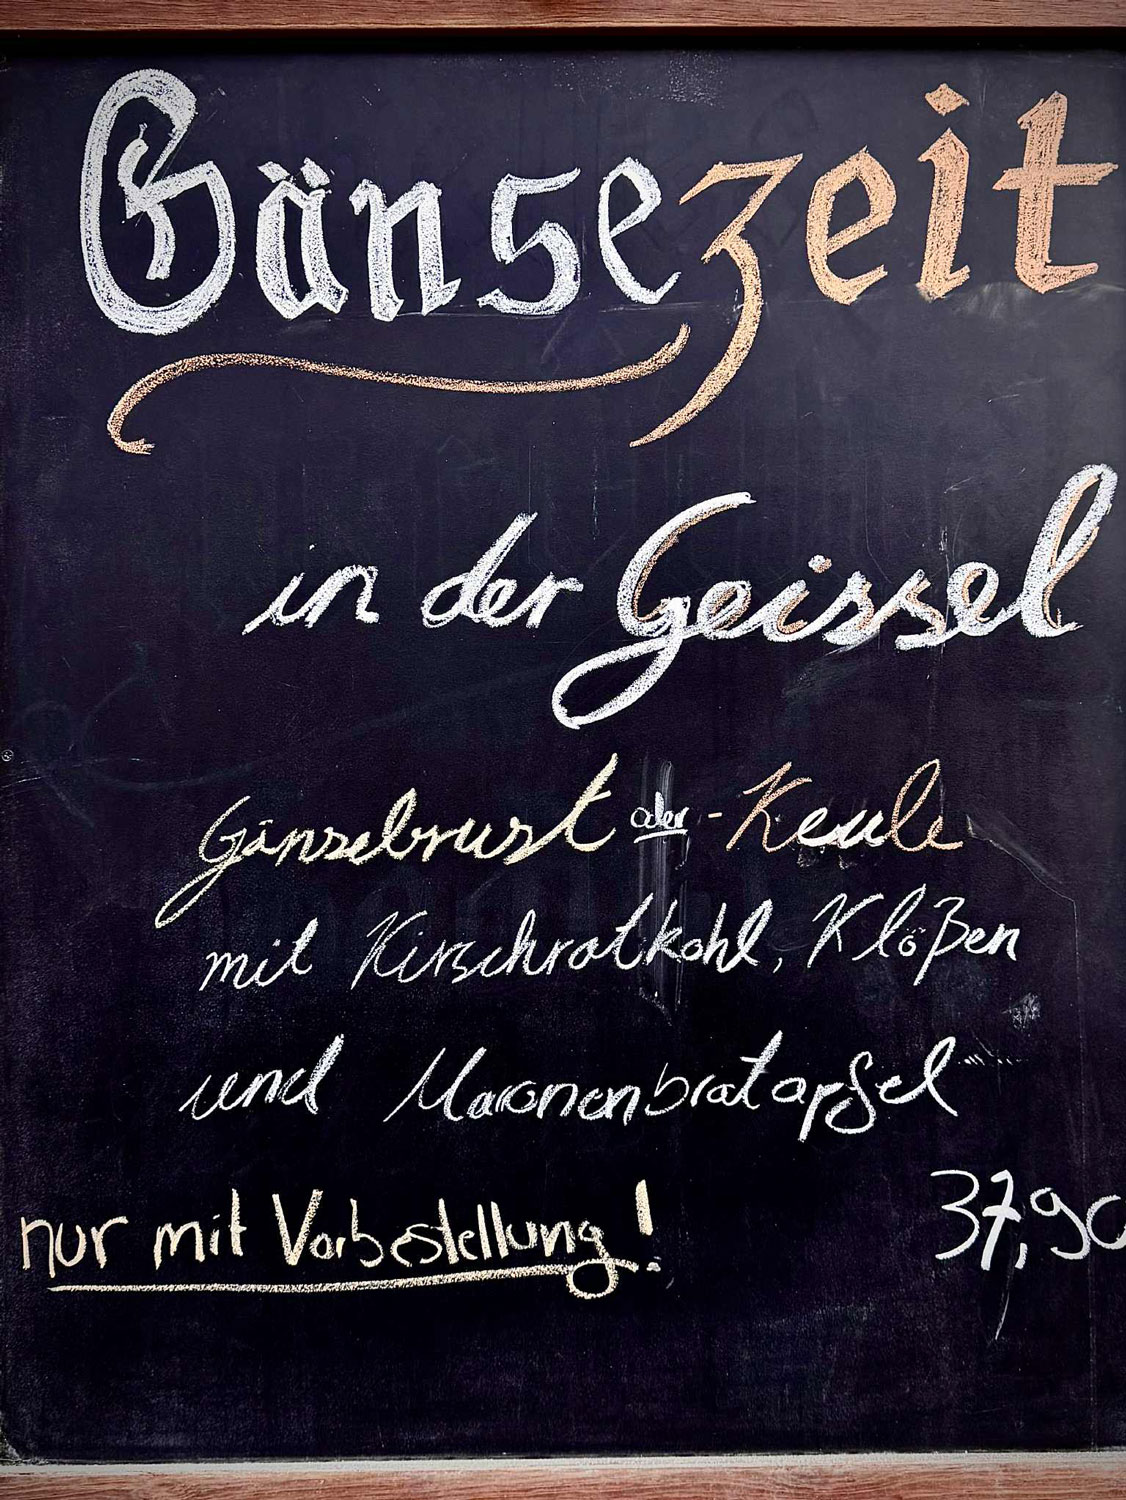 Gänsezeit
in der Geissel
Gänsebrust oder -Keule
mit Kirschrotkohl, Klößen
und Maronenbratapfel
nur mit Vorbestellung! 37,90